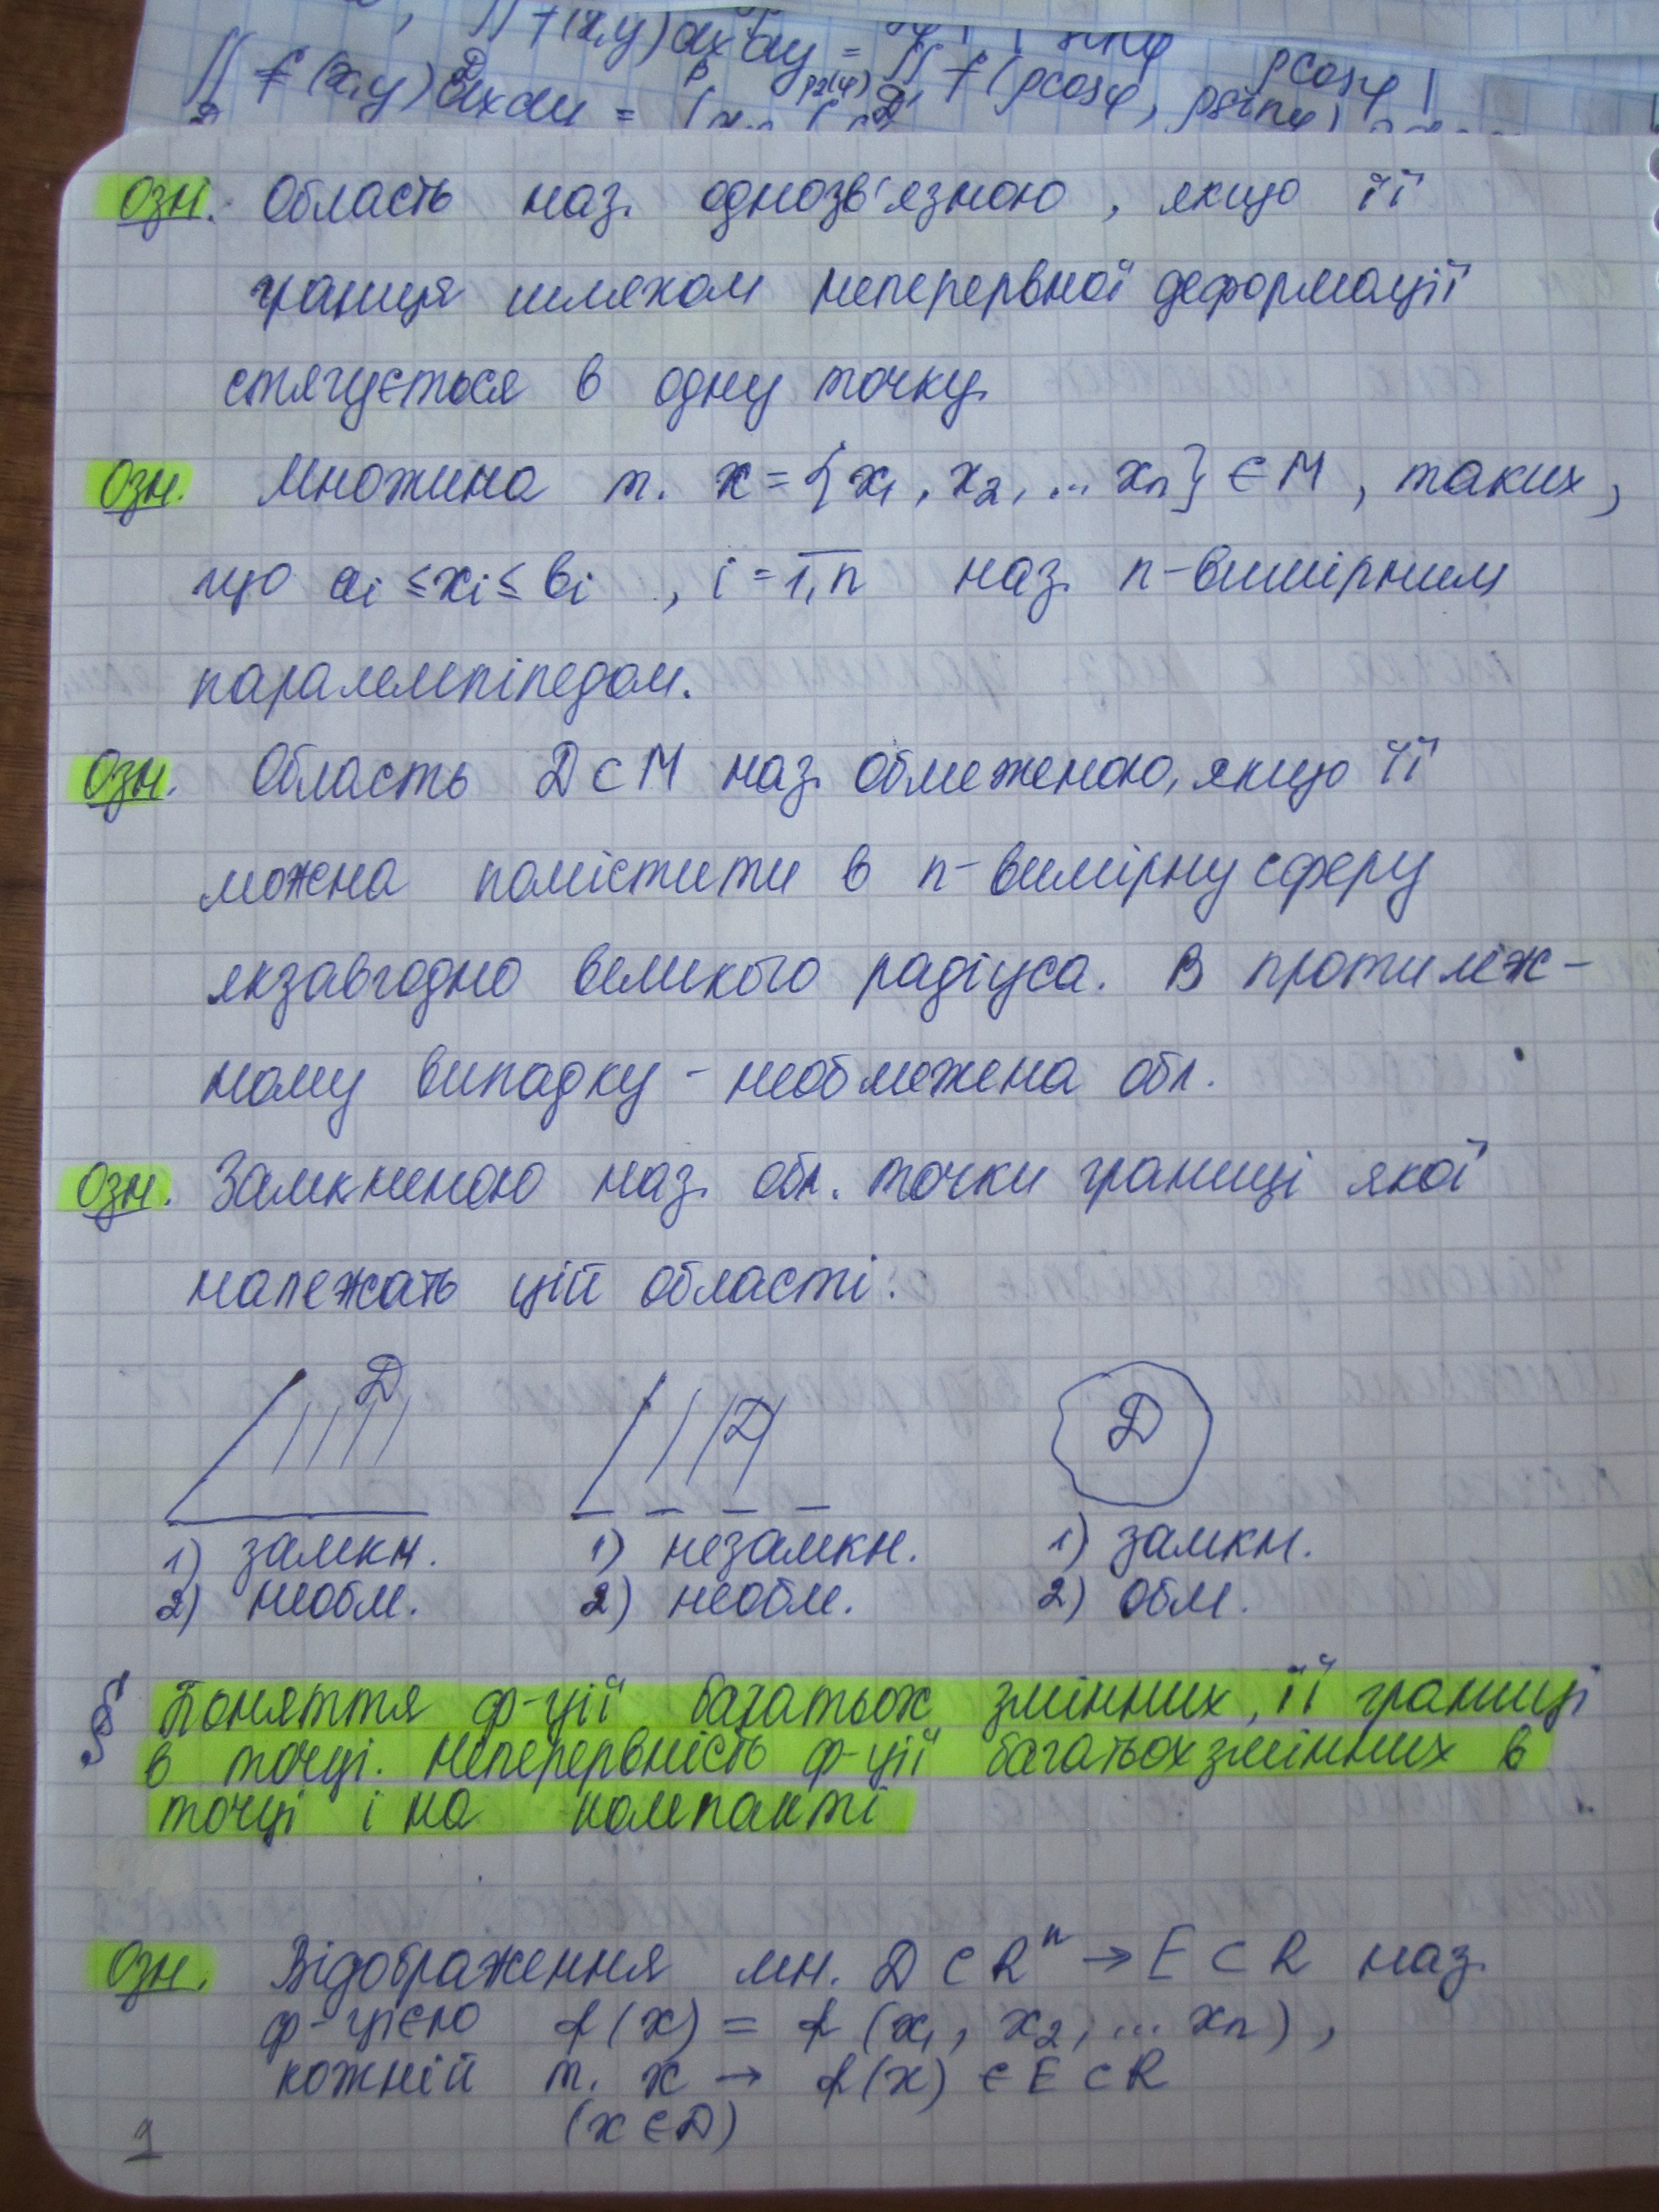 ∬ f(x,y)dxdy =
ρcosφ
∬ f(x,y)dxdy = f(ρcosφ, ρsinφ)
Озн. Область наз. однозв'язною, якщо її
границя шляхом неперервної деформації
стягується в одну точку.
Озн. Множина т. x = {x₁, x₂, ... xₙ} ∈ M, таких,
що aᵢ ≤ xᵢ ≤ bᵢ , i = 1,n наз. n-вимірним
паралелепіпедом.
Озн. Область D ⊂ M наз. обмеженою, якщо її
можна помістити в n-вимірну сферу
якзавгодно великого радіуса. В протилеж-
ному випадку - необмежена обл.
Озн. Замкненою наз. обл. точки границі якої
належать цій області.
D D D
1) замкн. 1) незамкн. 1) замкн.
2) необм. 2) необм. 2) обм.
§ Поняття ф-ції багатьох змінних, її границі
в точці. Неперервність ф-ції багатьох змінних в
точці і на компакті
Озн. Відображення мн. D ⊂ Rⁿ → E ⊂ R наз.
ф-цією f(x) = f(x₁, x₂, ... xₙ),
кожній т. x → f(x) ∈ E ⊂ R
(x ∈ D)
1